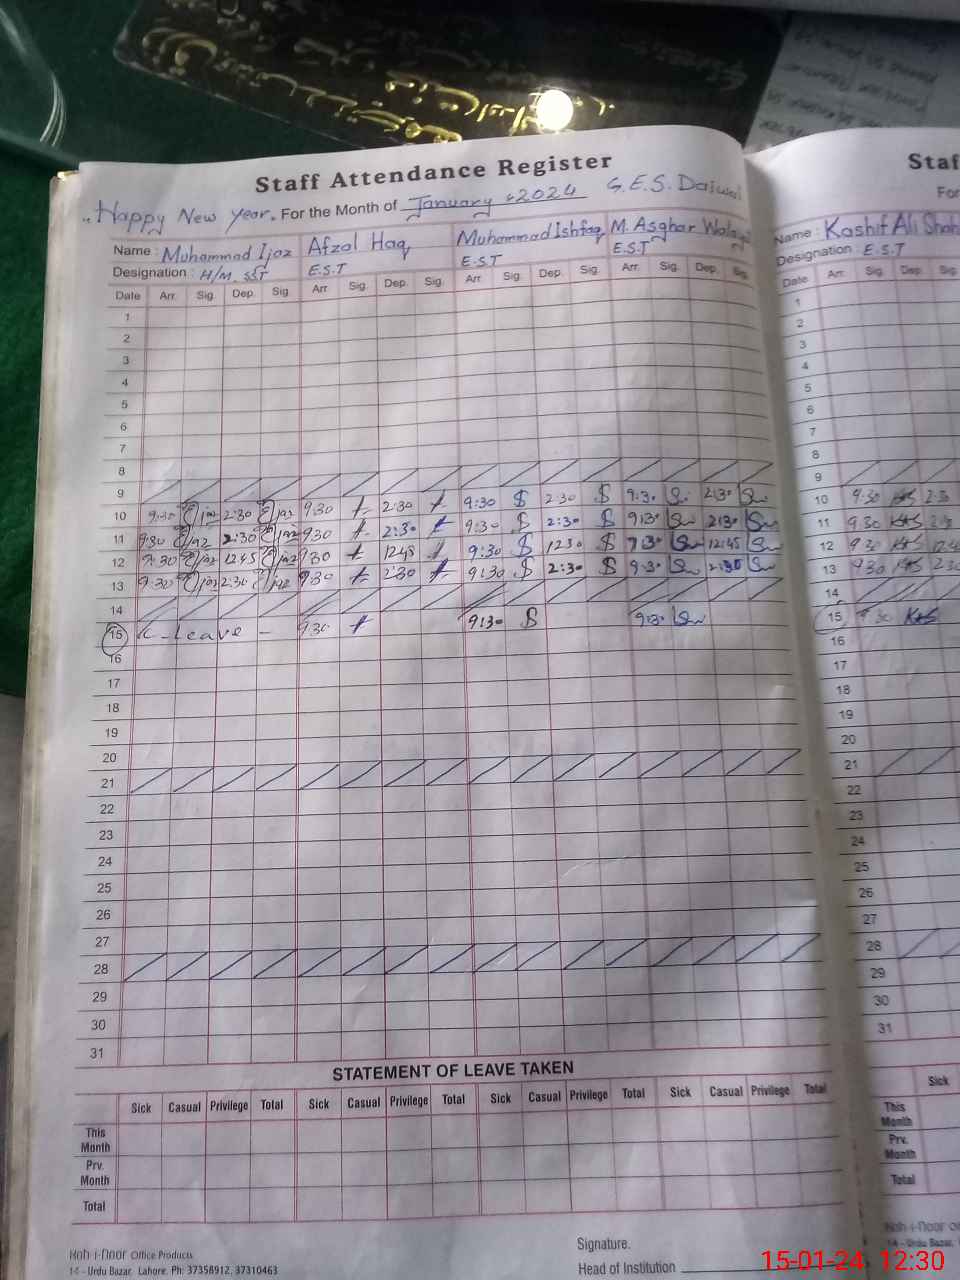 Staff Attendance Register
"Happy New Year" For the Month of January 2024 G.E.S. Daiwal
Name : Muhammad Ijaz Afzal Haq Muhammad Ishfaq M. Asghar
Designation : H/M. SST E.S.T E.S.T E.S.T
Date Arr. Sig. Dep. Sig. Arr. Sig. Dep. Sig. Arr. Sig. Dep. Sig. Arr. Sig. Dep. Sig.
1
2
3
4
5
6
7
8
9
10 9:30 Ijaz 2:30 Ijaz 9:30 2:30 9:30 2:30 9:30 2:30
11 9:30 Ijaz 2:30 Ijaz 9:30 2:30 9:30 2:30 9:30 2:30
12 9:30 Ijaz 12:45 Ijaz 9:30 12:45 9:30 12:30 9:30 12:45
13 9:30 Ijaz 2:30 Ijaz 9:30 2:30 9:30 2:30 9:30 2:30
14
15 C-Leave - 9:30 9:30 9:30
16
17
18
19
20
21
22
23
24
25
26
27
28
29
30
31
STATEMENT OF LEAVE TAKEN
Sick Casual Privilege Total Sick Casual Privilege Total Sick Casual Privilege Total Sick Casual Privilege Total
This Month
Prv. Month
Total
Koh-i-noor Office Products
14 - Urdu Bazar, Lahore. Ph: 37358912, 37310463
Signature.
Head of Institution
Staf
For
Name : Kashif Ali Shah
Designation : E.S.T
Date Arr. Sig. Dep. Sig.
1
2
3
4
5
6
7
8
9
10 9:30 KAS 2:30
11 9:30 KAS 2:3
12 9:30 KAS 12:4
13 9:30 KAS 2:30
14
15 9:30 KAS
16
17
18
19
20
21
22
23
24
25
26
27
28
29
30
31
Sick
This Month
Prv. Month
Total
Koh-i-noor
14 - Urdu Bazar,
15-01-24, 12:30